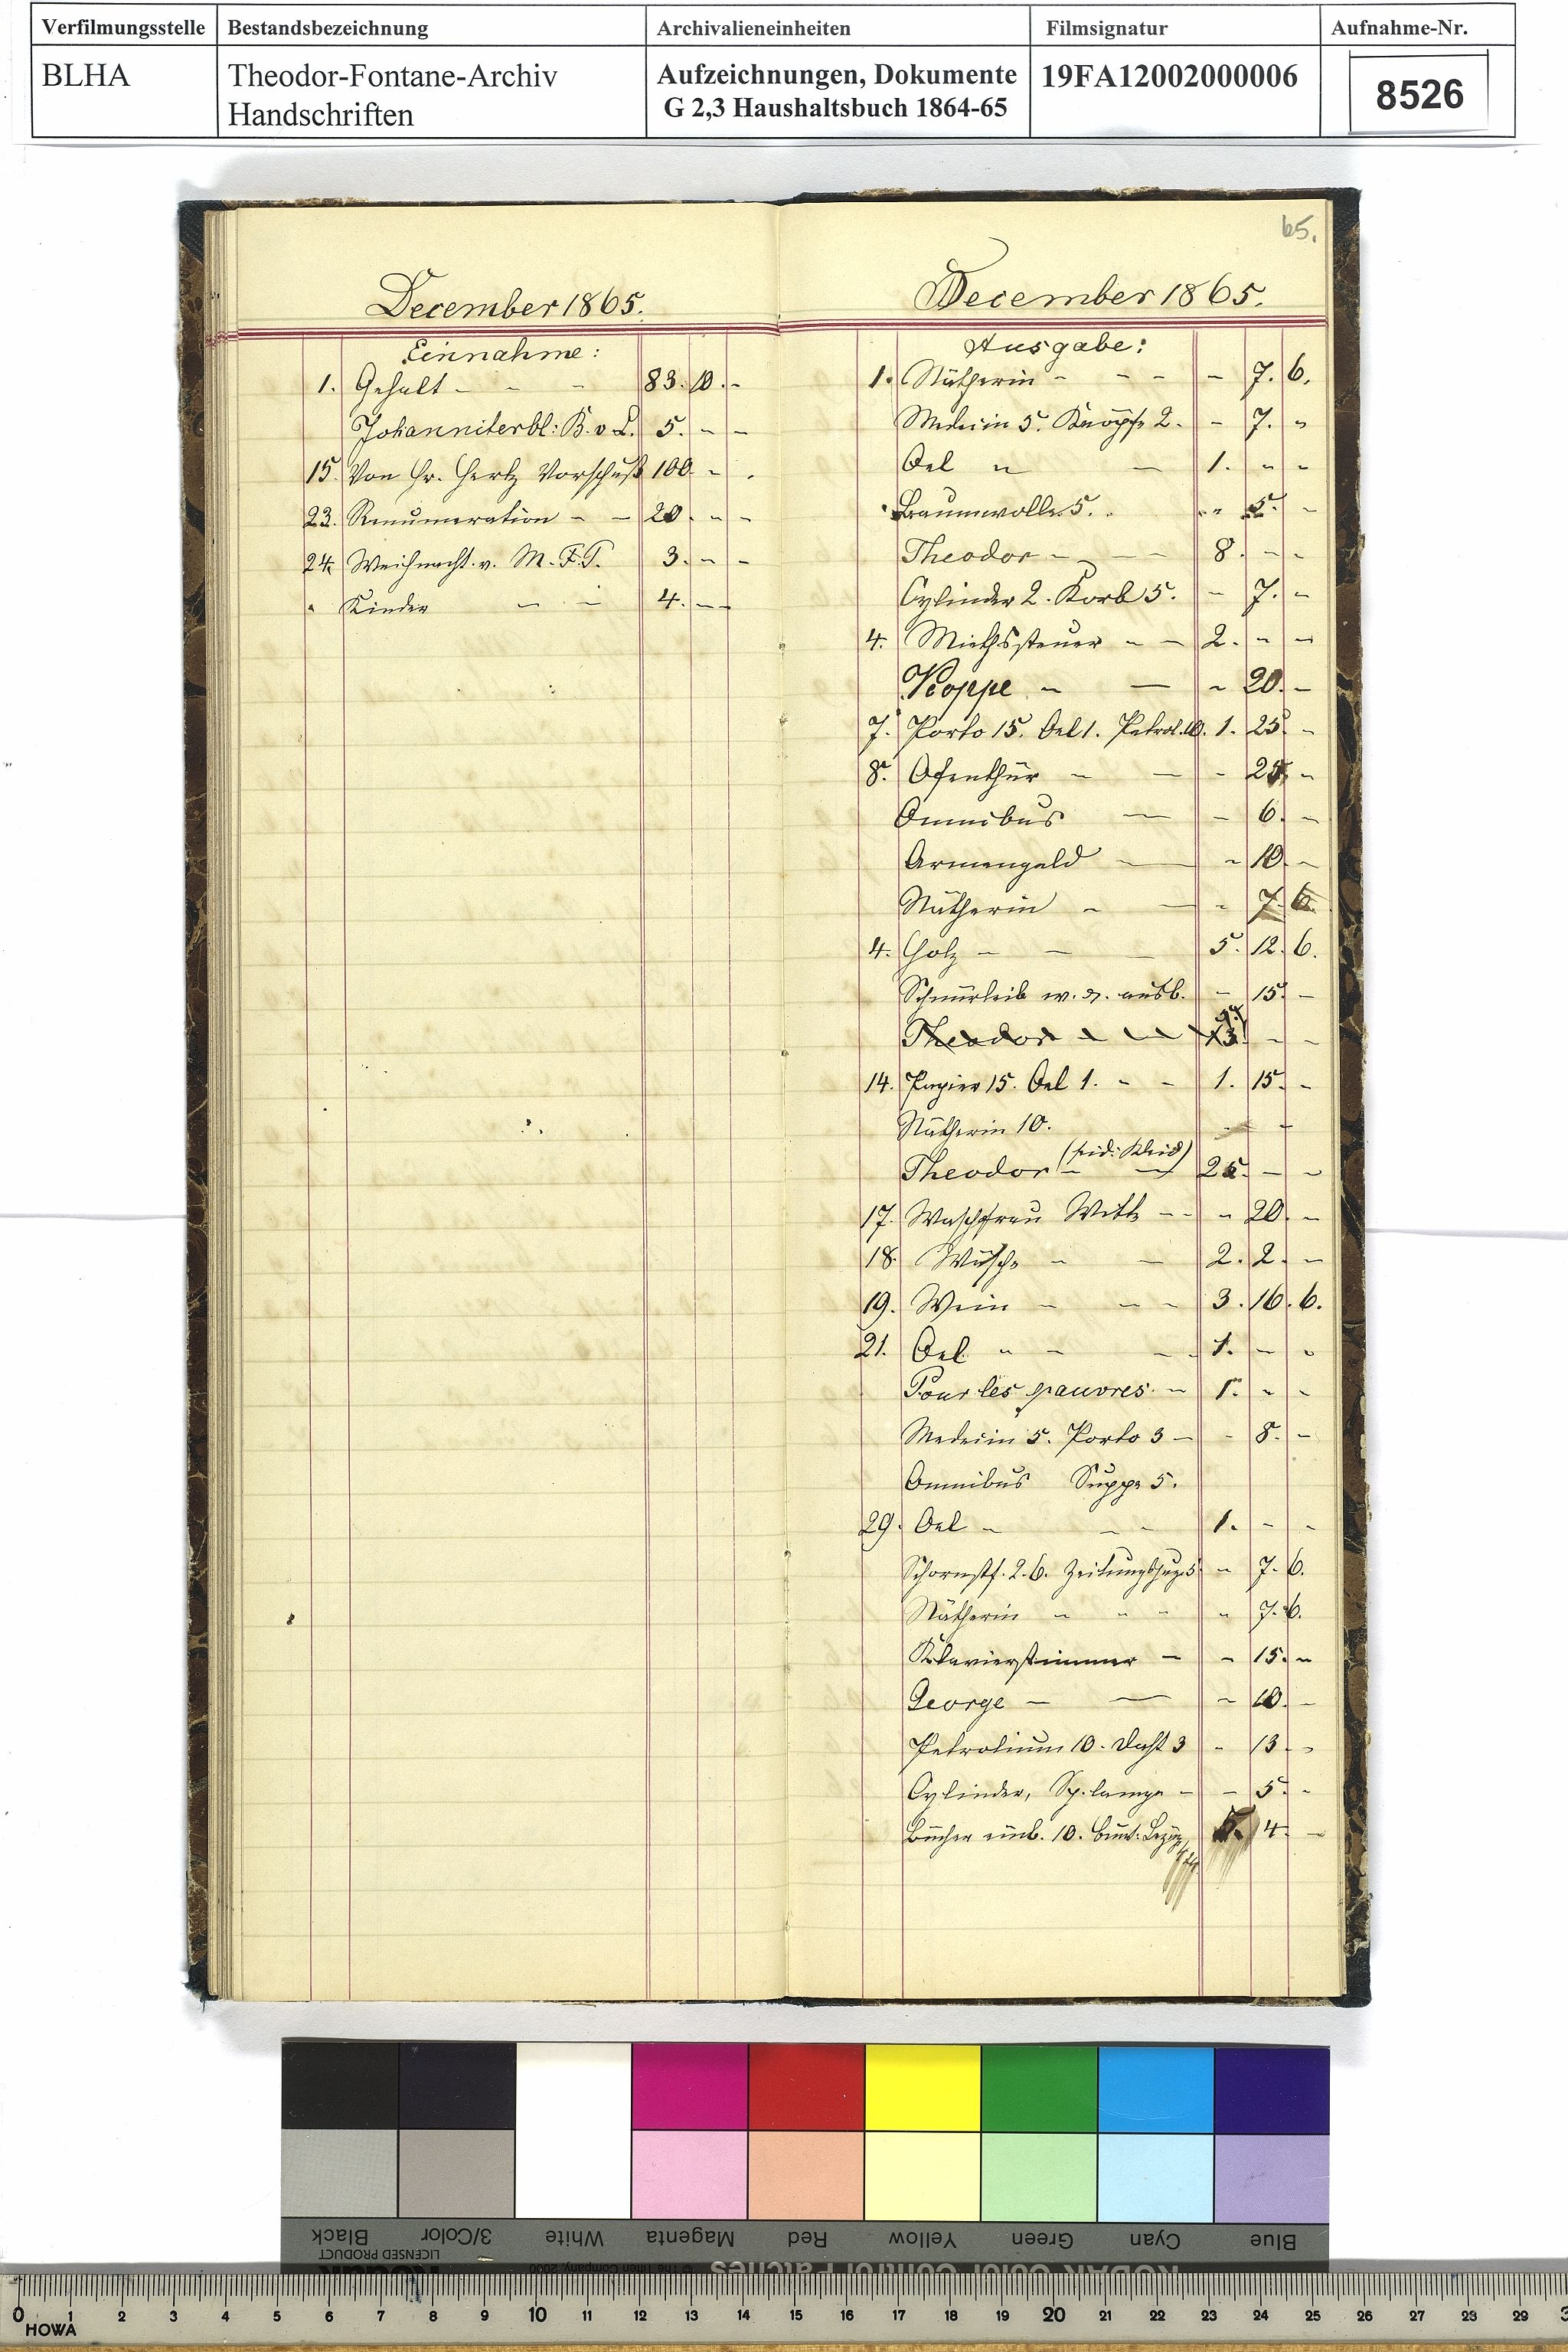 Verfilmungsstelle Bestandsbezeichnung Archivalieneinheiten Filmsignatur Aufnahme-Nr.
BLHA Theodor-Fontane-Archiv Handschriften Aufzeichnungen, Dokumente G 2,3 Haushaltsbuch 1864-65 19FA12002000006 8526
65.
December 1865.
Einnahme:
1. Gehalt - - - 83. 10. -
Johanniterbl: B. v. L. 5. - -
15. Von Hr. Hertz Vorschuß 100. - .
23. Renumeration - - 20. - -
24. Weihnacht. v. M. F. T. 3. - -
" Kinder - - 4. - -
December 1865.
Ausgabe:
1. Nätherin - - - - 7. 6.
Medecin 5. Knöpfe 2. - 7. -
Oel " - 1. - -
Baumwolle 5. . - 5. -
Theodor - - 8. - -
Cylinder 2. Korb 5. - 7. -
4. Miethssteuer - - 2. - -
Koppe - - - 20. -
7. Porto 15. Oel 1. Petrol. 10. 1. 25. -
8. Ofenthür - - - 25. -
Omnibus - - 6. -
Armengeld - - 10. -
Nätherin - - - 7. 6.
4. Holz - - - 5. 12. 6.
Schnürleib w. d. ausb. - 15. -
Theodor - - - -
14. Papier 15. Oel 1. - - 1. 15. -
Nätherin 10. - -
Theodor (seid: Kleid) 25. - -
17. Waschfrau Witte - - - 20. -
18. Wäsche - - 2. 2. -
19. Wein - - - 3. 16. 6.
21. Oel " - - 1. - -
Pour les pauvres. - 1. - -
Medecin 5. Porto 3 - - 8. -
Omnibus Suppe 5.
29. Oel - - - 1. - -
Schornstf. 2.6. 5 - 7. 6.
Nätherin - - - - 7. 6.
Klavierstimmer - - 15. -
George - - - 10. -
Petrolium 10. Docht 3 - 13 -
Cylinder, Sp.lampe - - 5. -
Bücher einb. 10. 4. -
Black 3/Color White Magenta Red Yellow Green Cyan Blue
LICENSED PRODUCT
Kodak
© The Tiffen Company, 2000
KODAK Color Control Patches
0 1 2 3 4 5 6 7 8 9 10 11 12 13 14 15 16 17 18 19 20 21 22 23 24 25 26 27 28 29 3
HOWA